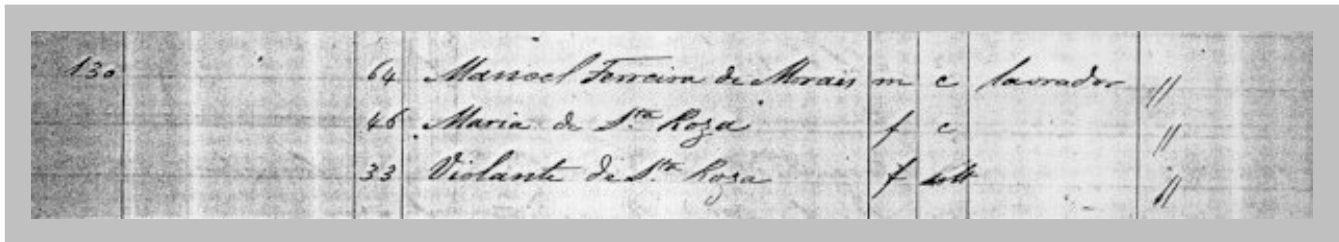 130 64 Manoel Ferreira de Morais m c lavrador //
46 Maria de S.ta Roza f c //
33 Violante de S.ta Roza f solt //